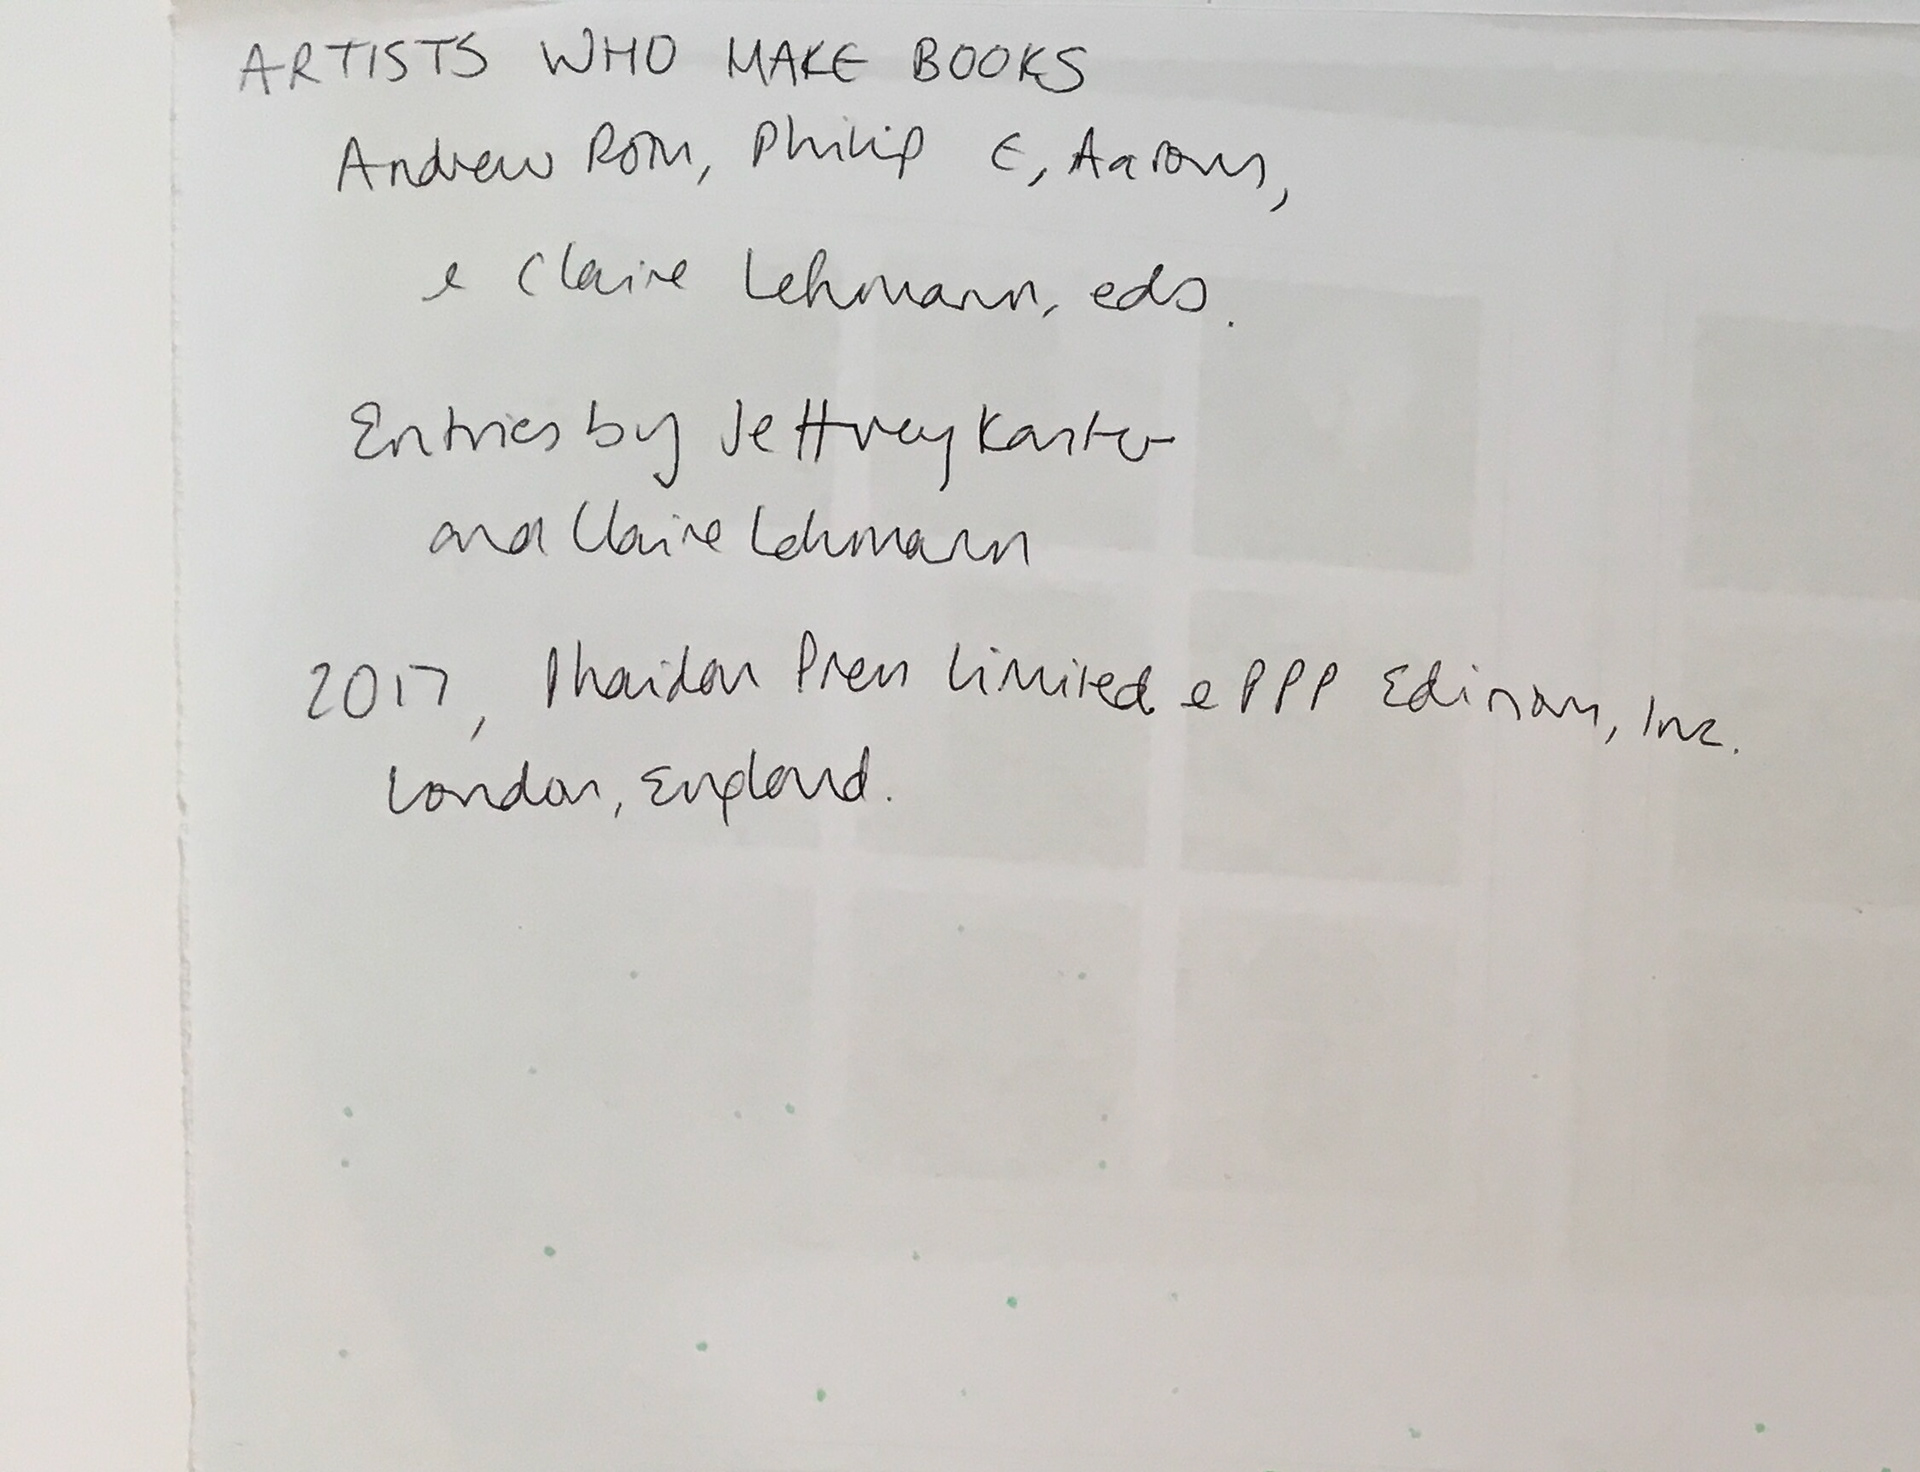 ARTISTS WHO MAKE BOOKS
Andrew Roth, Philip E, Aarons,
e Claire Lehmann, eds.
Entries by Jeffrey Kastner
and Claire Lehmann
2017, Phaidon Press Limited e PPP Editions, Inc.
London, England.